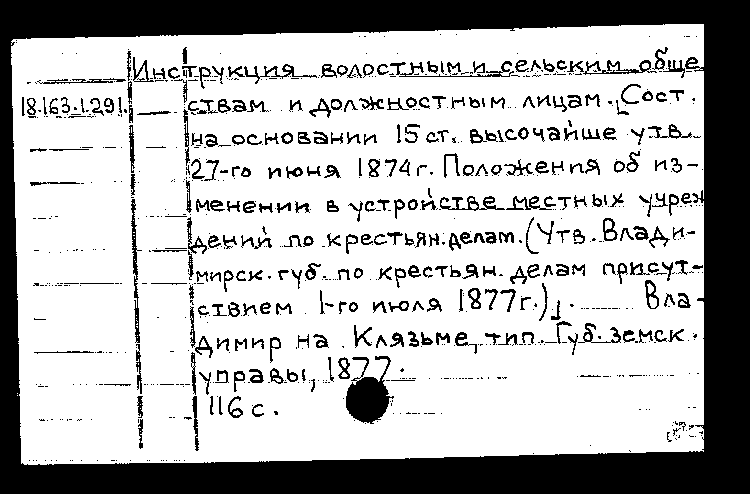 Инструкция волостным и сельским обще
18.163.1.291. ствам и должностным лицам. [Сост.
на основании 15 ст. высочайше утв.
27-го июня 1874 г. Положения об из-
менении в устройстве местных учреж
дений по крестьян. делам. (Утв. Влади-
мирск. губ. по крестьян. делам присут-
ствием 1-го июля 1877 г.)]. Вла-
димир на Клязьме, тип. Губ. земск.
управы, 1877.
116 с.